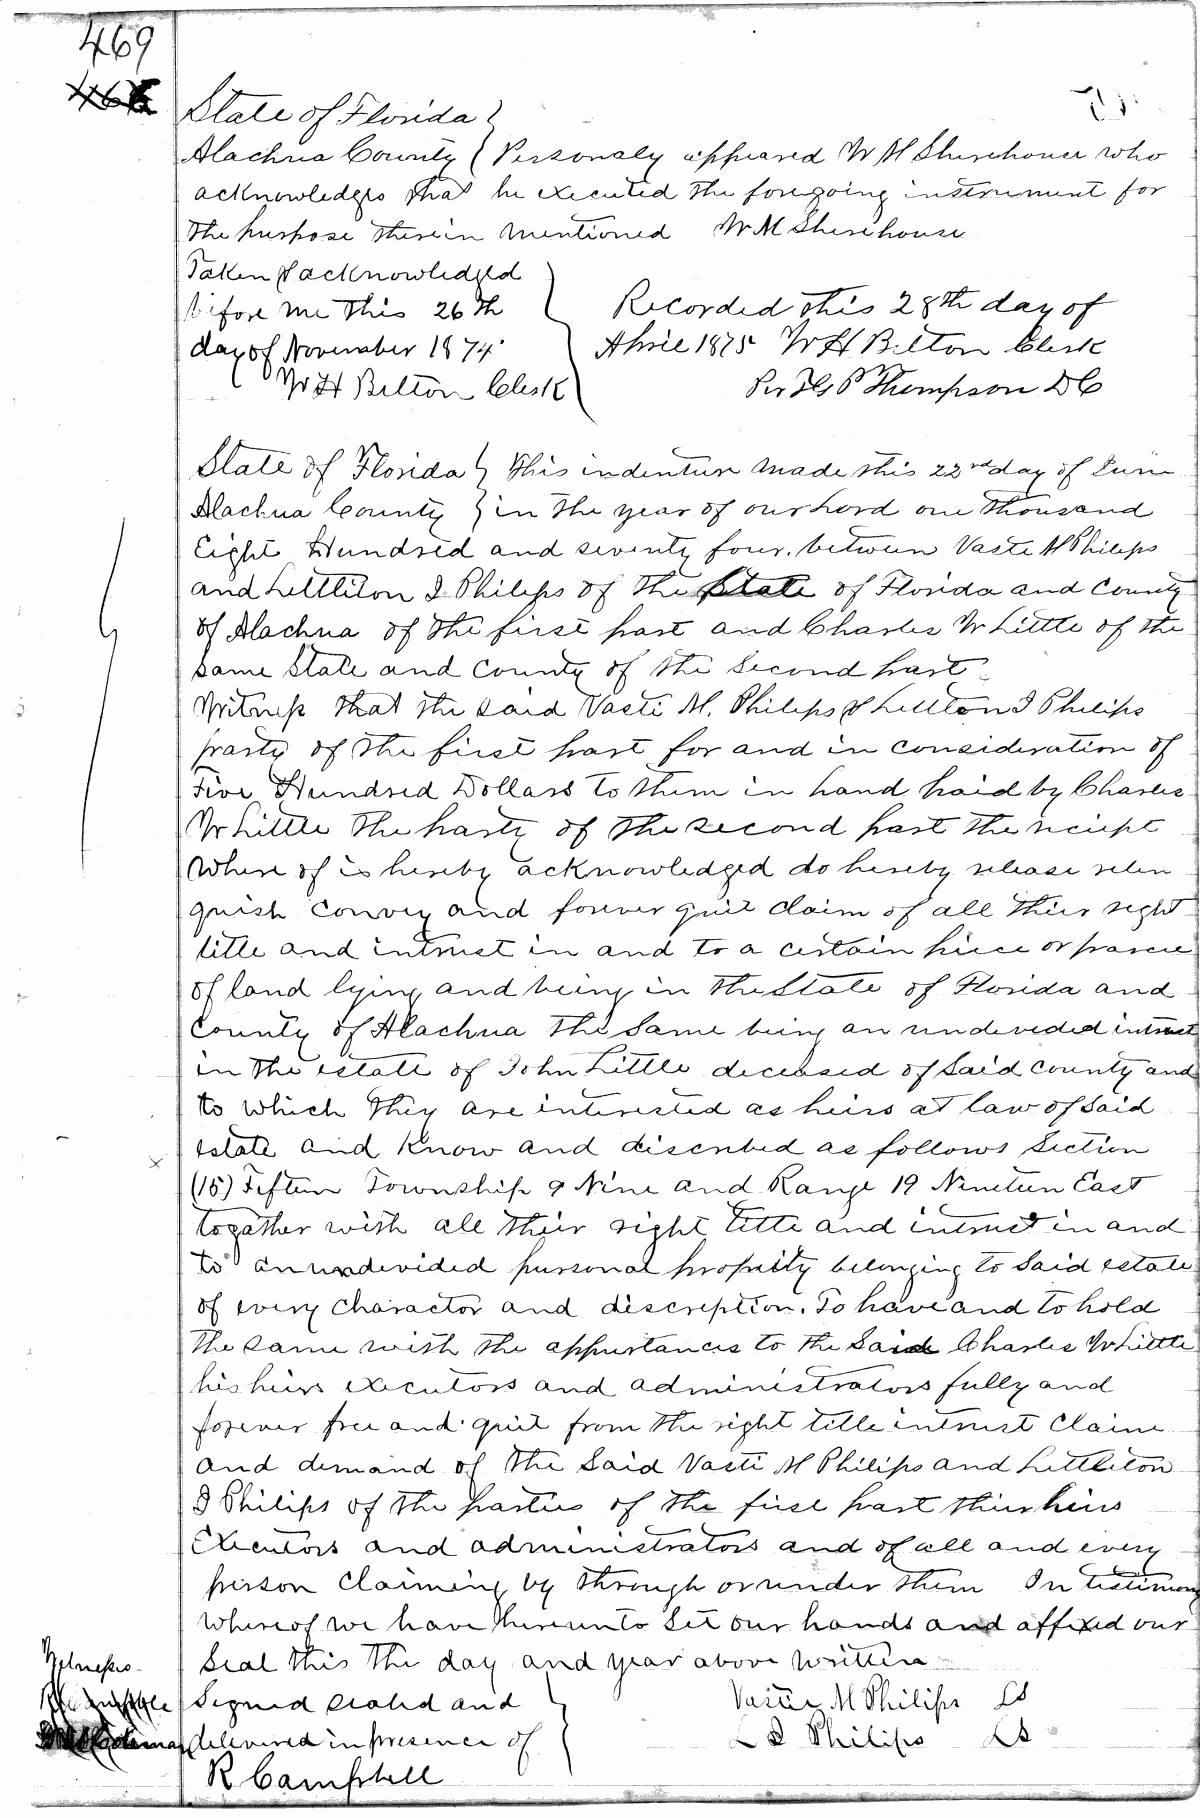 469
State of Florida
Alachua County } Personaly appeared W M Shirehouse who
acknowledges that he executed the foregoing instrument for
the purpose therein mentioned W M Shirehouse
Taken & acknowledged
before me this 26th
day of November 1874
W H Belton Clerk
Recorded this 28th day of
April 1875 W H Belton Clerk
Per P Thompson D C
State of Florida } This indenture made this 22nd day of June
Alachua County } in the year of our Lord one thousand
Eight Hundred and seventy four. between Vaste M Philips
and Lettleton I Philips of the State of Florida and County
of Alachua of the first part and Charles W Little of the
same State and County of the Second part
Witness that the said Vasti M. Philips & Lettleton I Philips
party of the first part for and in consideration of
Five Hundred Dollars to them in hand paid by Charles
W Little the party of the second part the reciept
where of is hereby acknowledged do hereby release relen
quish convey and forever quit claim of all thier right
title and intrust in and to a certain piece or parcee
of land lying and being in the State of Florida and
County of Alachua the Same being an undevided intrust
in the estate of John Little deceased of Said County and
to which they are interested as heirs at law of Said
estate and Know and discribed as follows Section
(15) Fifteen Township 9 Nine and Range 19 Nineteen East
togather with all thier right title and intrust in and
to an undevided pursonal propeity belonging to Said estate
of every charactor and discreption. To have and to hold
the same with the appurtances to the Said Charles W Little
his heirs executors and administrators fully and
forever free and quit from the right title intrust Claim
and demand of the Said Vasti M Philips and Lettleton
I Philips of the parties of the first part thier heirs
Executors and administrators and of all and every
person claiming by through or under them In testimony
whereof we have hereunto Set our hands and affixed our
Seal this the day and year above written
Witness
Signed sealed and
delivered in presence of
R Campbell
Vastie M Philips LS
L I Philips LS